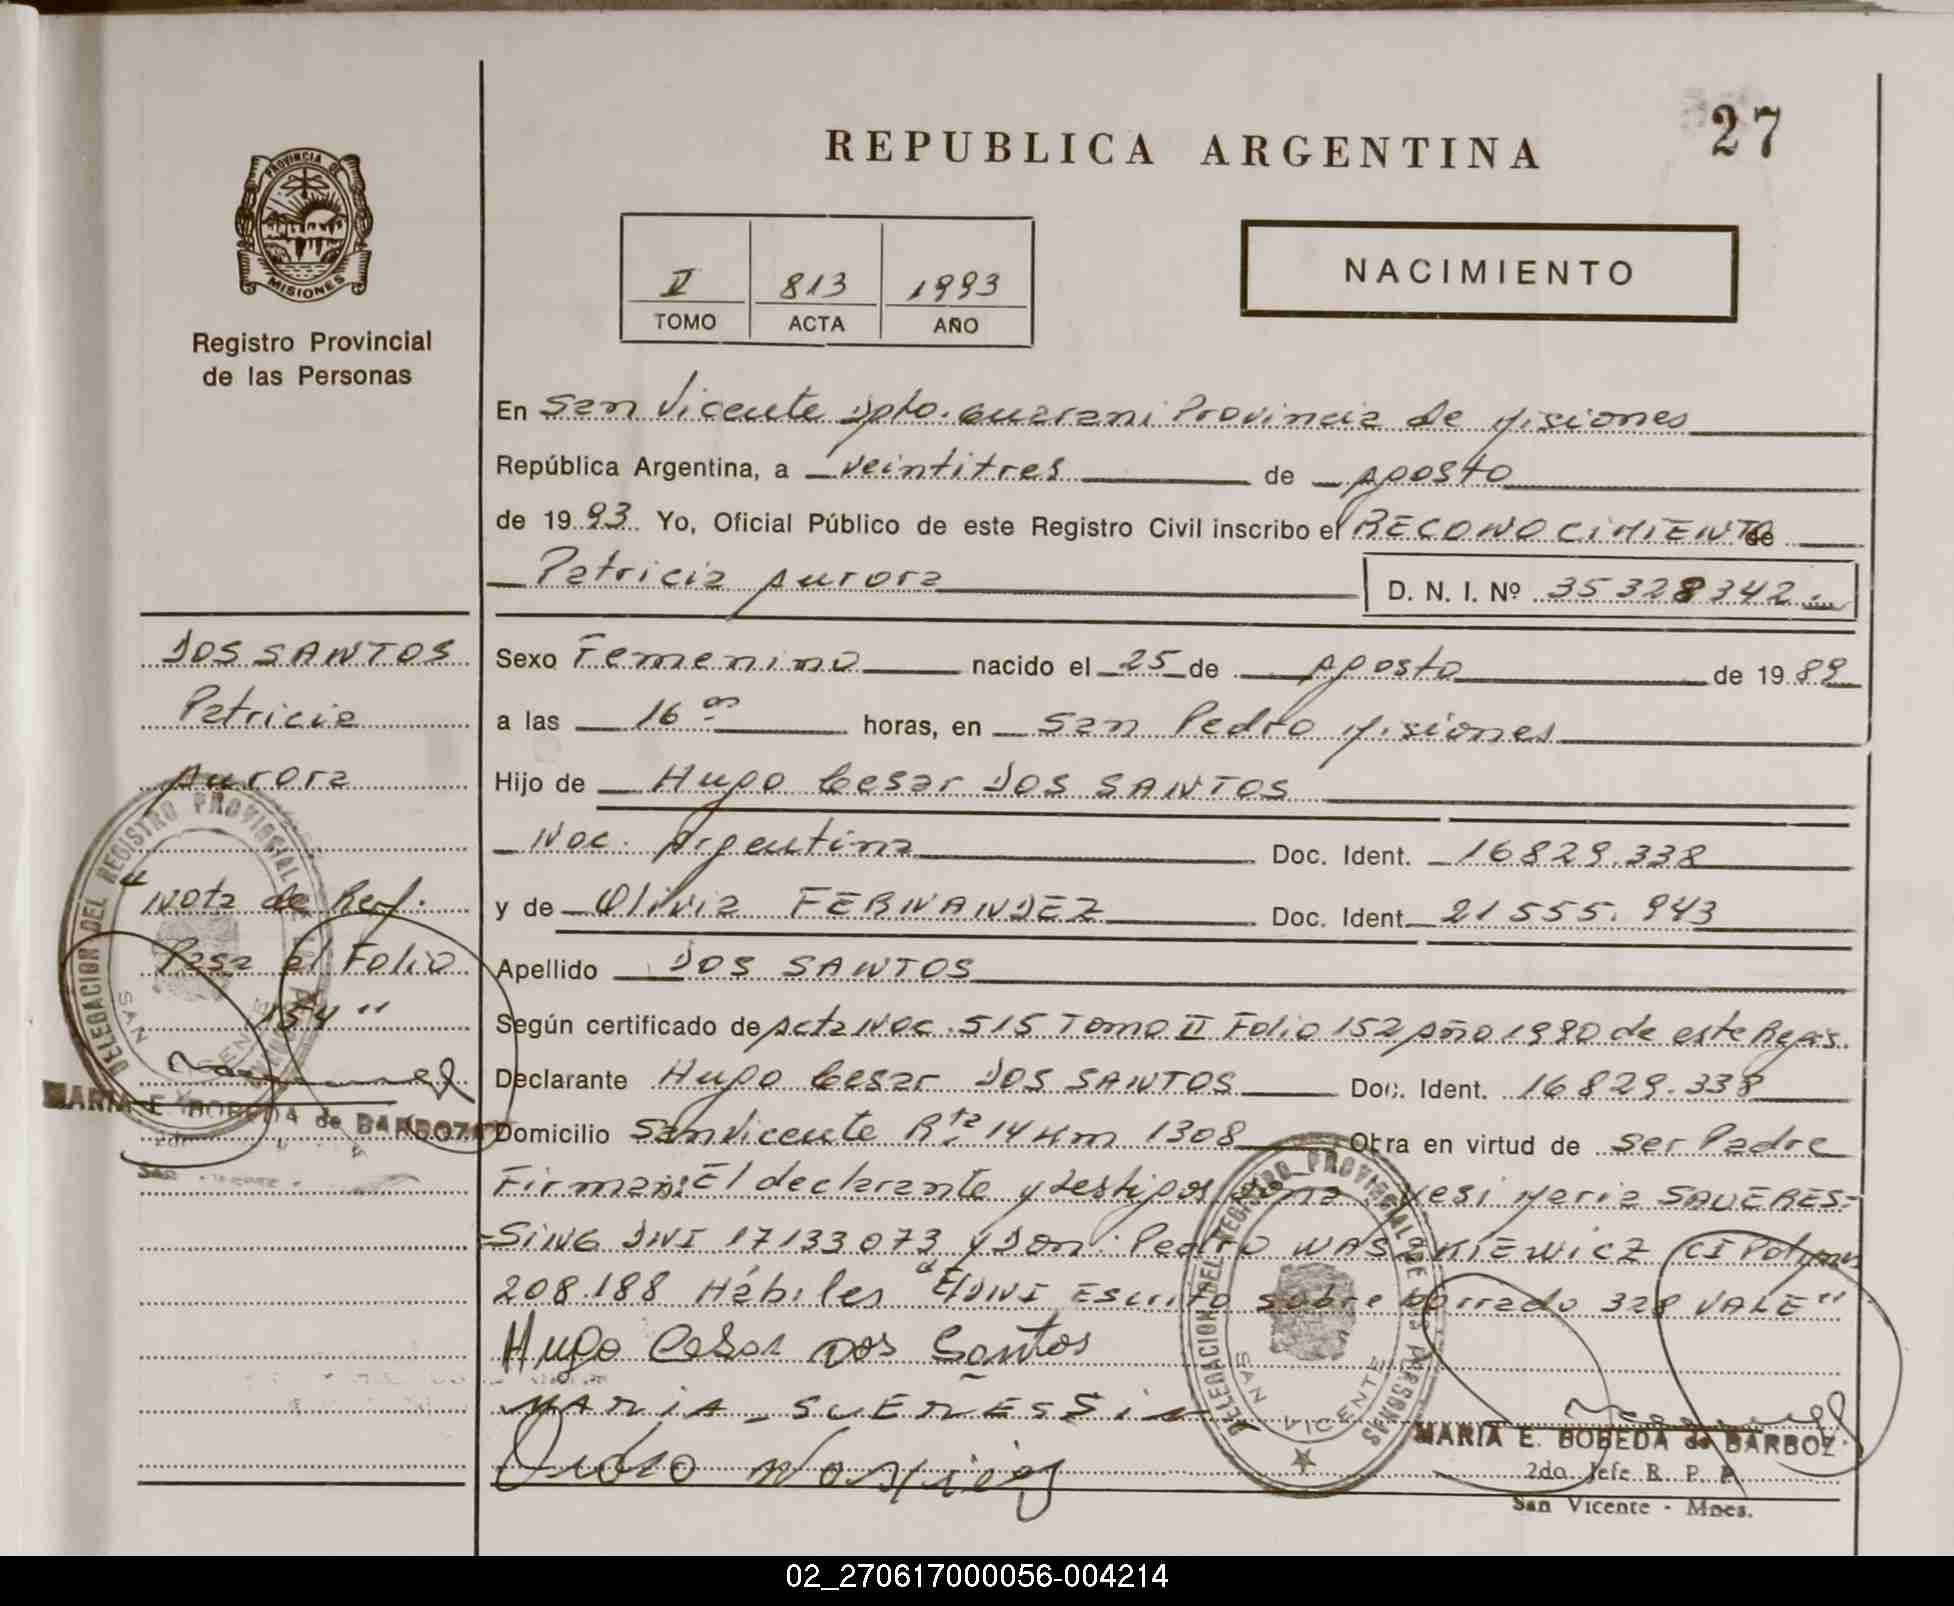 REPUBLICA ARGENTINA
27
PROVINCIA DE
MISIONES
Registro Provincial
de las Personas
II 813 1993
TOMO ACTA AÑO
NACIMIENTO
En San Vicente Dpto. Guarani Provincia de Misiones
República Argentina, a veintitres de Agosto
de 1993 Yo, Oficial Público de este Registro Civil inscribo el RECONOCIMIENTO de
Patricia Aurora D. N. I. Nº 35328342
DOS SANTOS
Patricia
Aurora
"Nota de Ref.
Pasa al Folio
154"
MARIA E. BOBEDA de BARBOZA
DELEGACION DEL REGISTRO PROVINCIAL
SAN VICENTE
Sexo Femenino nacido el 25 de Agosto de 1989
a las 16 horas, en San Pedro Misiones
Hijo de Hugo Cesar DOS SANTOS
Nac. Argentina Doc. Ident. 16829.338
y de Olivia FERNANDEZ Doc. Ident. 21555.943
Apellido DOS SANTOS
Según certificado de Acta Nac. 515 Tomo II Folio 152 Año 1990 de este Regis.
Declarante Hugo Cesar DOS SANTOS Doc. Ident. 16829.338
Domicilio San Vicente Rta 14 Km 1308 Obra en virtud de Ser Padre
Firman: El declarante y testigos Doña Maria SAUERES-
-SING DNI 17133073 y Don: Pedro WASZKIEWICZ CI Pol. Mnes
208.188 Hábiles "DNI Escrito sobre borrado 328 VALE"
Hugo Cesar Dos Santos
MARIA
DELEGACION DEL REGISTRO PROVINCIAL DE LAS PERSONAS
SAN VICENTE
MARIA E. BOBEDA de BARBOZ
2do. Jefe R. P. P.
San Vicente - Mnes.
02_270617000056-004214